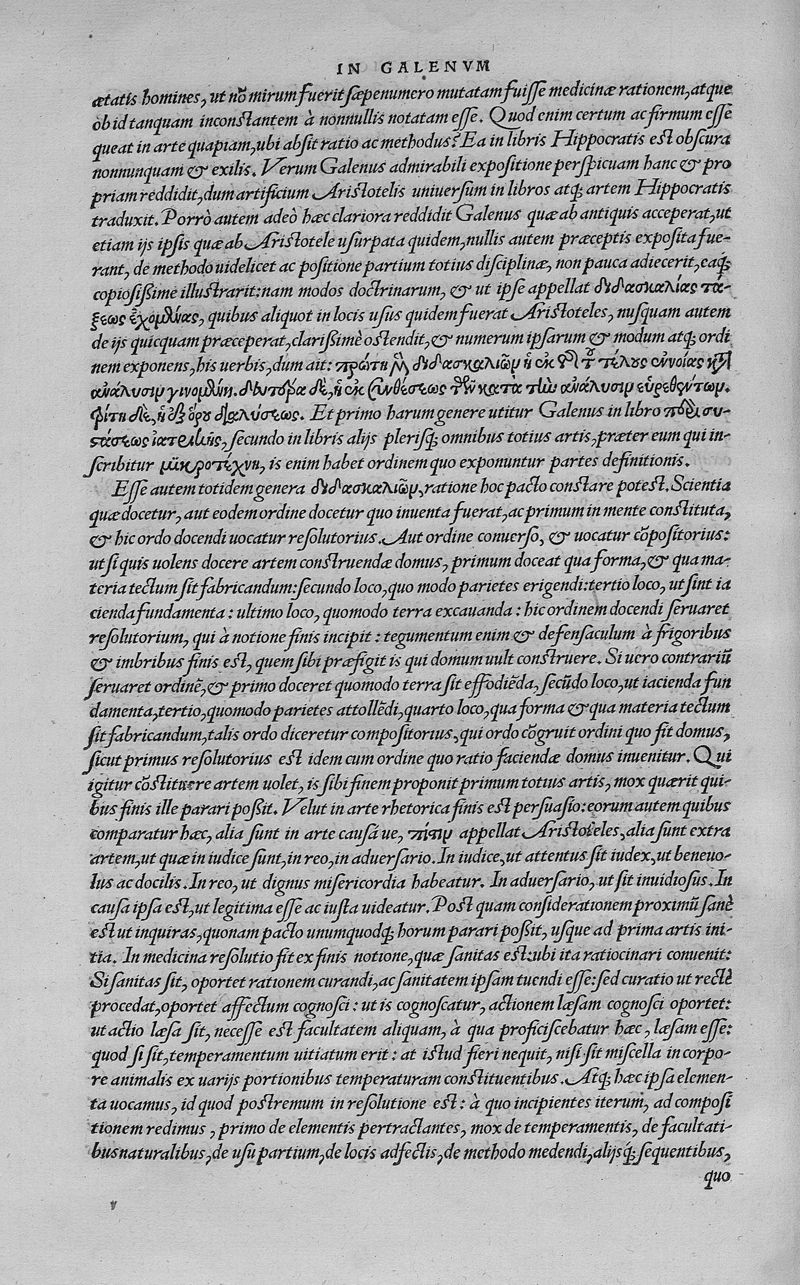 IN GALENVM
ætatis homines, ut nõ mirum fuerit sæpenumero mutatam fuisse medicinæ rationem, atque
ob id tanquam inconstantem à nonnullis notatam esse. Quod enim certum ac firmum esse
queat in arte quapiam, ubi absit ratio ac methodus? Ea in libris Hippocratis est obscura
nonnunquam & exilis. Verum Galenus admirabili expositione perspicuam hanc & pro
priam reddidit, dum artificium Aristotelis uniuersum in libros atq; artem Hippocratis
traduxit. Porrò autem adeò hæc clariora reddidit Galenus quæ ab antiquis acceperat, ut
etiam ijs ipsis quæ ab Aristotele usurpata quidem, nullis autem præceptis exposita fue-
rant, de methodo uidelicet ac positione partium totius disciplinæ, non pauca adiecerit, eaq;
copiosissime illustrarit: nam modos doctrinarum, & ut ipse appellat διδασκαλίας τά-
ξεως ἐχομένας, quibus aliquot in locis usus quidem fuerat Aristoteles, nusquam autem
de ijs quicquam præceperat, clarissimè ostendit, & numerum ipsarum & modum atq; ordi
nem exponens, his uerbis, dum ait: πρώτη μὲν διδασκαλιῶν ἡ ἐκ τῆς τοῦ τέλους ἐννοίας κατ᾽
ἀνάλυσιν γινομένη. δευτέρα δὲ, ἡ ἐκ συνθέσεως τῶν κατὰ τὴν ἀνάλυσιν εὑρεθέντων.
τρίτη δὲ, ἡ ἐξ ὅρου διαλύσεως. Et primo harum genere utitur Galenus in libro περὶ συ-
στάσεως ἰατρικῆς, secundo in libris alijs plerisq; omnibus totius artis, præter eum qui in-
scribitur μικροτέχνη, is enim habet ordinem quo exponuntur partes definitionis.
Esse autem totidem genera διδασκαλιῶν, ratione hoc pacto constare potest. Scientia
quæ docetur, aut eodem ordine docetur quo inuenta fuerat, ac primum in mente constituta,
& hic ordo docendi uocatur resolutorius. Aut ordine conuerso, & uocatur cõpositorius:
ut si quis uolens docere artem construendæ domus, primum doceat qua forma, & qua ma-
teria tectum sit fabricandum: secundo loco, quo modo parietes erigendi: tertio loco, ut sint ia
cienda fundamenta: ultimo loco, quomodo terra excauanda: hic ordinem docendi seruaret
resolutorium, qui à notione finis incipit: tegumentum enim & defensaculum à frigoribus
& imbribus finis est, quem sibi præfigit is qui domum uult construere. Si uero contrariũ
seruaret ordinẽ, & primo doceret quomodo terra sit effodiẽda, secũdo loco, ut iacienda fun
damenta, tertio, quomodo parietes attollẽdi, quarto loco, qua forma & qua materia tectum
sit fabricandum, talis ordo diceretur compositorius, qui ordo cõgruit ordini quo fit domus,
sicut primus resolutorius est idem cum ordine quo ratio faciendæ domus inuenitur. Qui
igitur cõstituere artem uolet, is sibi finem proponit primum totius artis, mox quærit qui-
bus finis ille parari possit. Velut in arte rhetorica finis est persuasio: eorum autem quibus
comparatur hæc, alia sunt in arte causá ue, πίστιν appellat Aristoteles, alia sunt extra
artem, ut quæ in iudice sunt, in reo, in aduersario. In iudice, ut attentus sit iudex, ut beneuo-
lus ac docilis. In reo, ut dignus misericordia habeatur. In aduersario, ut sit inuidiosus. In
causa ipsa est, ut legitima esse ac iusta uideatur. Post quam considerationem proximũ sanè
est ut inquiras, quonam pacto unumquodq; horum parari possit, usque ad prima artis ini-
tia. In medicina resolutio fit ex finis notione, quæ sanitas est: ubi ita ratiocinari conuenit:
Si sanitas sit, oportet rationem curandi, ac sanitatem ipsam tuendi esse: sed curatio ut rectè
procedat, oportet affectum cognosci: ut is cognoscatur, actionem læsam cognosci oportet:
ut actio læsa sit, necesse est facultatem aliquam, à qua proficiscebatur hæc, læsam esse:
quod si sit, temperamentum uitiatum erit: at istud fieri nequit, nisi sit miscella in corpo-
re animalis ex uarijs portionibus temperaturam constituentibus. Atq; hæc ipsa elemen-
ta uocamus, id quod postremum in resolutione est: à quo incipientes iterum, ad composi
tionem redimus, primo de elementis pertractantes, mox de temperamentis, de facultati-
bus naturalibus, de usu partium, de locis adfectis, de methodo medendi, alijsq; sequentibus,
quo